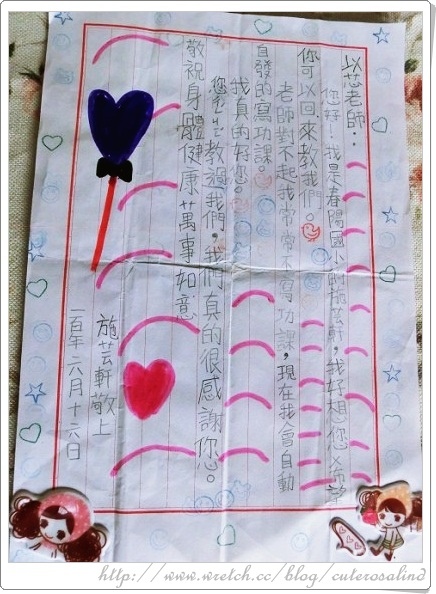 以芯老師：
您好！我是春陽國小的施芸軒，我好想您希望
你可以回來教我們。
老師對不起我常常不寫功課，現在我會自動
自發的寫功課。
我真的好您。
您教過我們，我們真的很感謝您。
敬祝身體健康萬事如意
施芸軒敬上
一百年六月十六日
http://www.wretch.cc/blog/cuterosalind